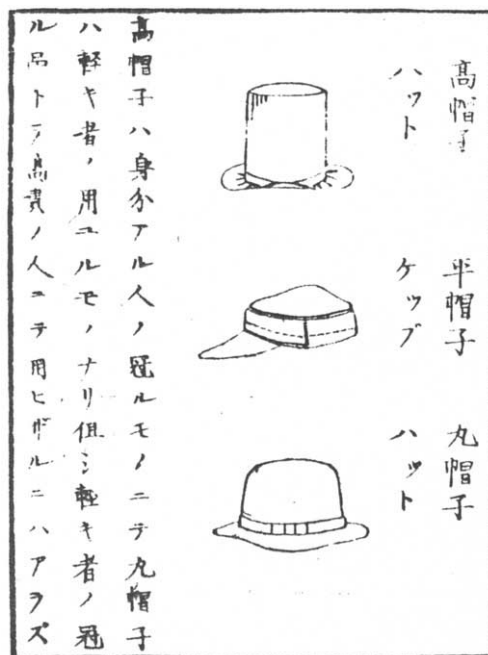 高帽子
ハット
平帽子
ケップ
丸帽子
ハット
高帽子ハ身分アル人ノ冠ルモノニテ丸帽子
ハ軽キ者ノ用ユルモノナリ但シ軽キ者ノ冠
ル品トテ高貴ノ人ニテ用ヒザルニハアラズ